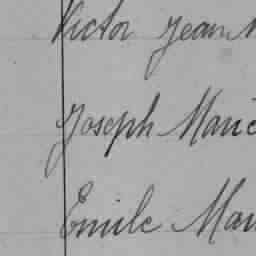 Victor Jean
Joseph Marie
Emile